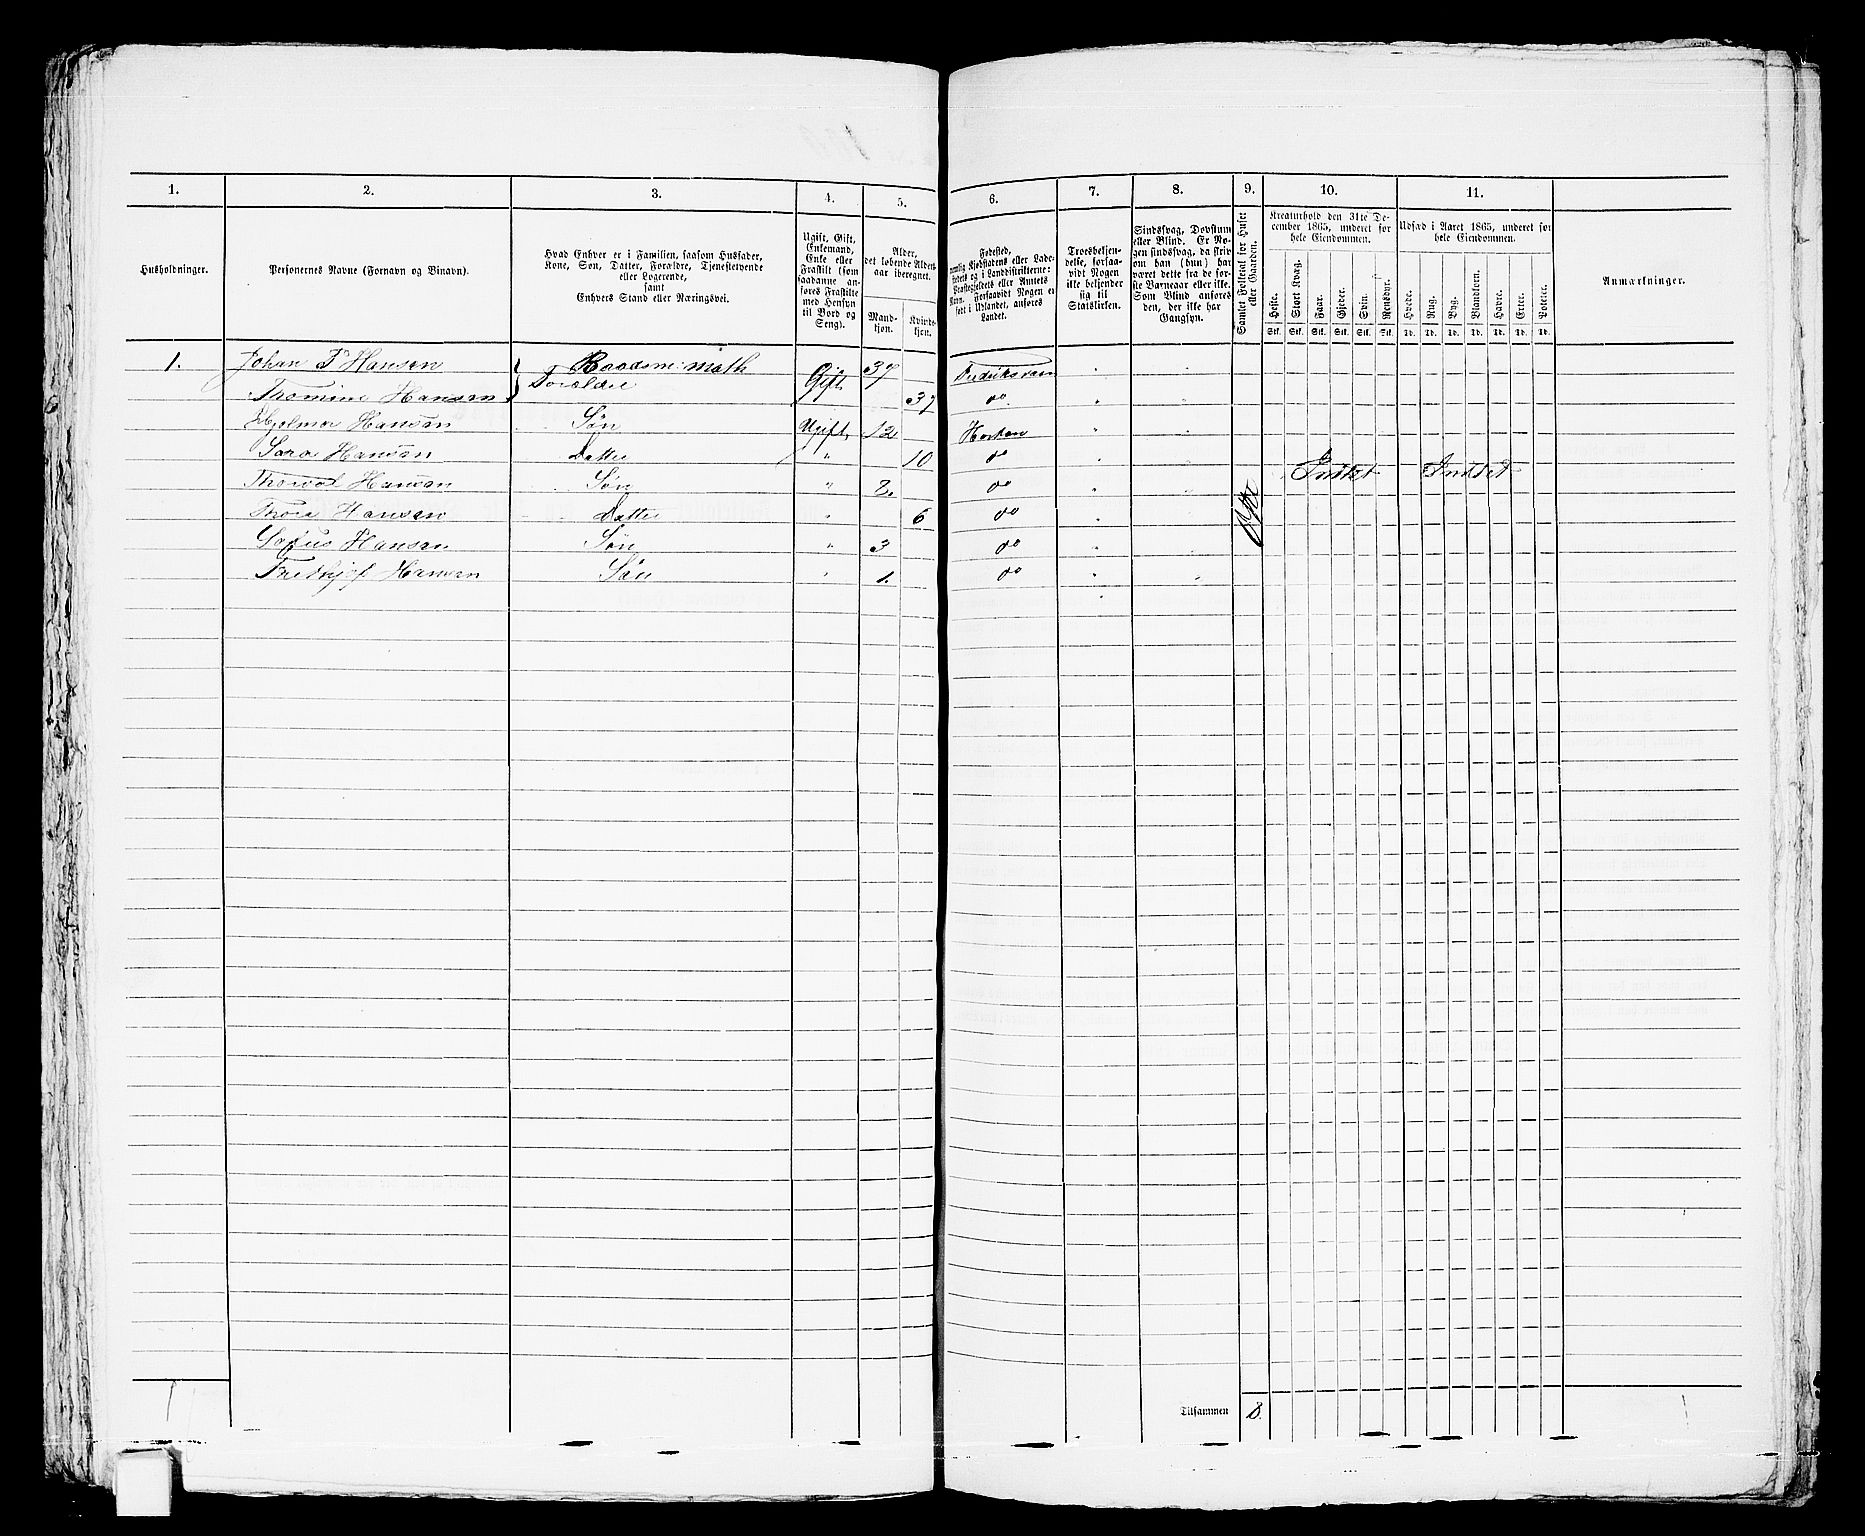 1. 2. 3. 4. 5. 6. 7. 8. 9. 10. 11.
Husholdninger.
Personernes Navne (Fornavn og Binavn).
Hvad Enhver er i Familien, saasom Husfader,
Kone, Søn, Datter, Forældre, Tjenestetyende
eller Logerende,
samt
Enhvers Stand eller Næringsvei.
Ugift, Gift,
Enkemand,
Enke eller
Fraskilt (som
saadanne an-
føres Fraskilte
med Hensyn
til Bord og
Seng).
Alder,
det løbende Alders-
aar iberegnet.
Mand-
kjøn.
Kvinde-
kjøn.
Fødested,
nemlig Kjøbstadens eller Lade-
stedets og i Landdistrikterne:
Præstegjeldets eller Annexets
Navn. Forsaavidt Nogen er
født i Udlandet, anføres
Landet.
Troesbekjen-
delse, forsaa-
vidt Nogen
ikke bekjender
sig til
Statskirken.
Sindssvag, Døvstum
eller Blind. Er No-
gen sindssvag, da skriv
om han (hun) har
været dette fra de før-
ste Barneaar eller ikke.
Som Blind anføres
den, der ikke har
Gangsyn.
Samlet Folketal for Huset
eller Gaarden.
Kreaturhold den 31te De-
cember 1865, underet for
hele Eiendommen.
Heste. Stort Kvæg. Faar. Gjeder. Svin. Rensdyr.
Stk. Stk. Stk. Stk. Stk. Stk.
Udsæd i Aaret 1865, underet for
hele Eiendommen.
Hvede. Rug. Byg. Blandkorn. Havre. Erter. Poteter.
Td. Td. Td. Td. Td. Td. Td.
Anmærkninger.
1. Johan F Hansen 37 Fredriksværn
Forældre Gift
Thomine Hansen 37 do
Hjelmar Hansen Søn Ugift 12 Horten
Sara Hansen Datter " 10 do
Thorvat Hansen Søn " 8. do Intet Intet
Thora Hansen Datter " 6 do Otte
Sofus Hansen Søn " 3 do
Fridthjof Hansen Søn " 1. do
Tilsammen 8.